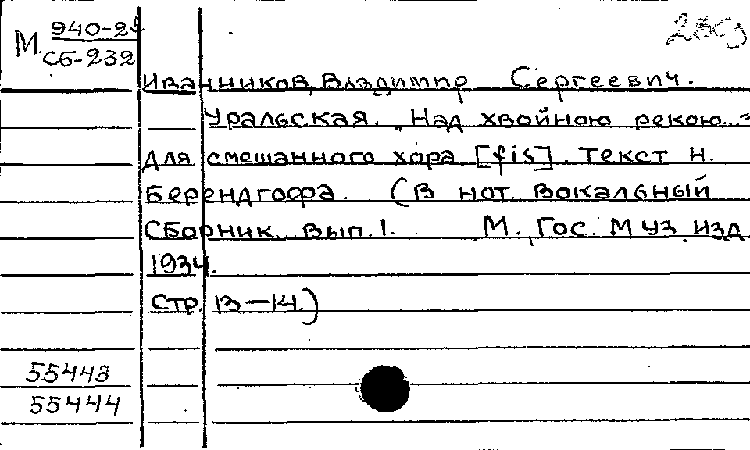 М 940-25
Сб-232
Иванников, Владимир Сергеевич.
Уральская. „Над хвойною рекою..."
для смешанного хора [fis]. Текст Н.
Берендгофа. (В нот. Вокальный
Сборник. Вып. 1. М., Гос. Муз. изд.
1934.
Стр. 13-14.)
55443
55444